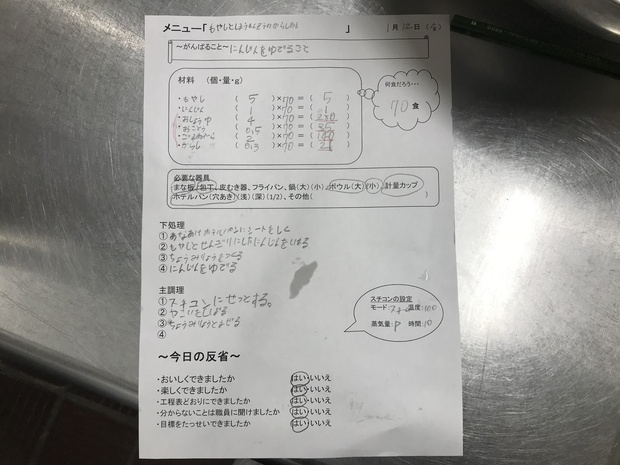 メニュー「もやしとほうれんそうのからしあえ」 1月12日()
～がんばること～にんじんをゆでること
材料 (個・量・g)
何食だろう・・・
70食
・もやし ( 5 )×70=( 5 )
・にんじん ( 1 )×70=( 1 )
・おしょうゆ ( 4 )×70=( 280 )
・おさとう ( 0,5 )×70=( 35 )
・ごまあぶら ( 2 )×70=( 140 )
・からし ( 0,3 )×70=( 21 )
必要な器具
まな板、包丁、皮むき器、フライパン、鍋(大)(小)、ボウル(大)(小)、計量カップ
ホテルパン(穴あき)(浅)(深)(1/2)、その他( )
下処理
①あなあきホテルパンにシートをしく
②もやしとせんぎりにしたにんじんをいれる
③ちょうみりょうをつくる
④にんじんをゆでる
主調理
①スチコンにせっとする。
②やさいをしぼる
③ちょうみりょうとまぜる
④
スチコンの設定
モード:スチーム 温度:100
蒸気量:P 時間:10
～今日の反省～
・おいしくできましたか はい・いいえ
・楽しくできましたか はい・いいえ
・工程表どおりにできましたか はい・いいえ
・分からないことは職員に聞けましたか はい・いいえ
・目標をたっせいできましたか はい・いいえ